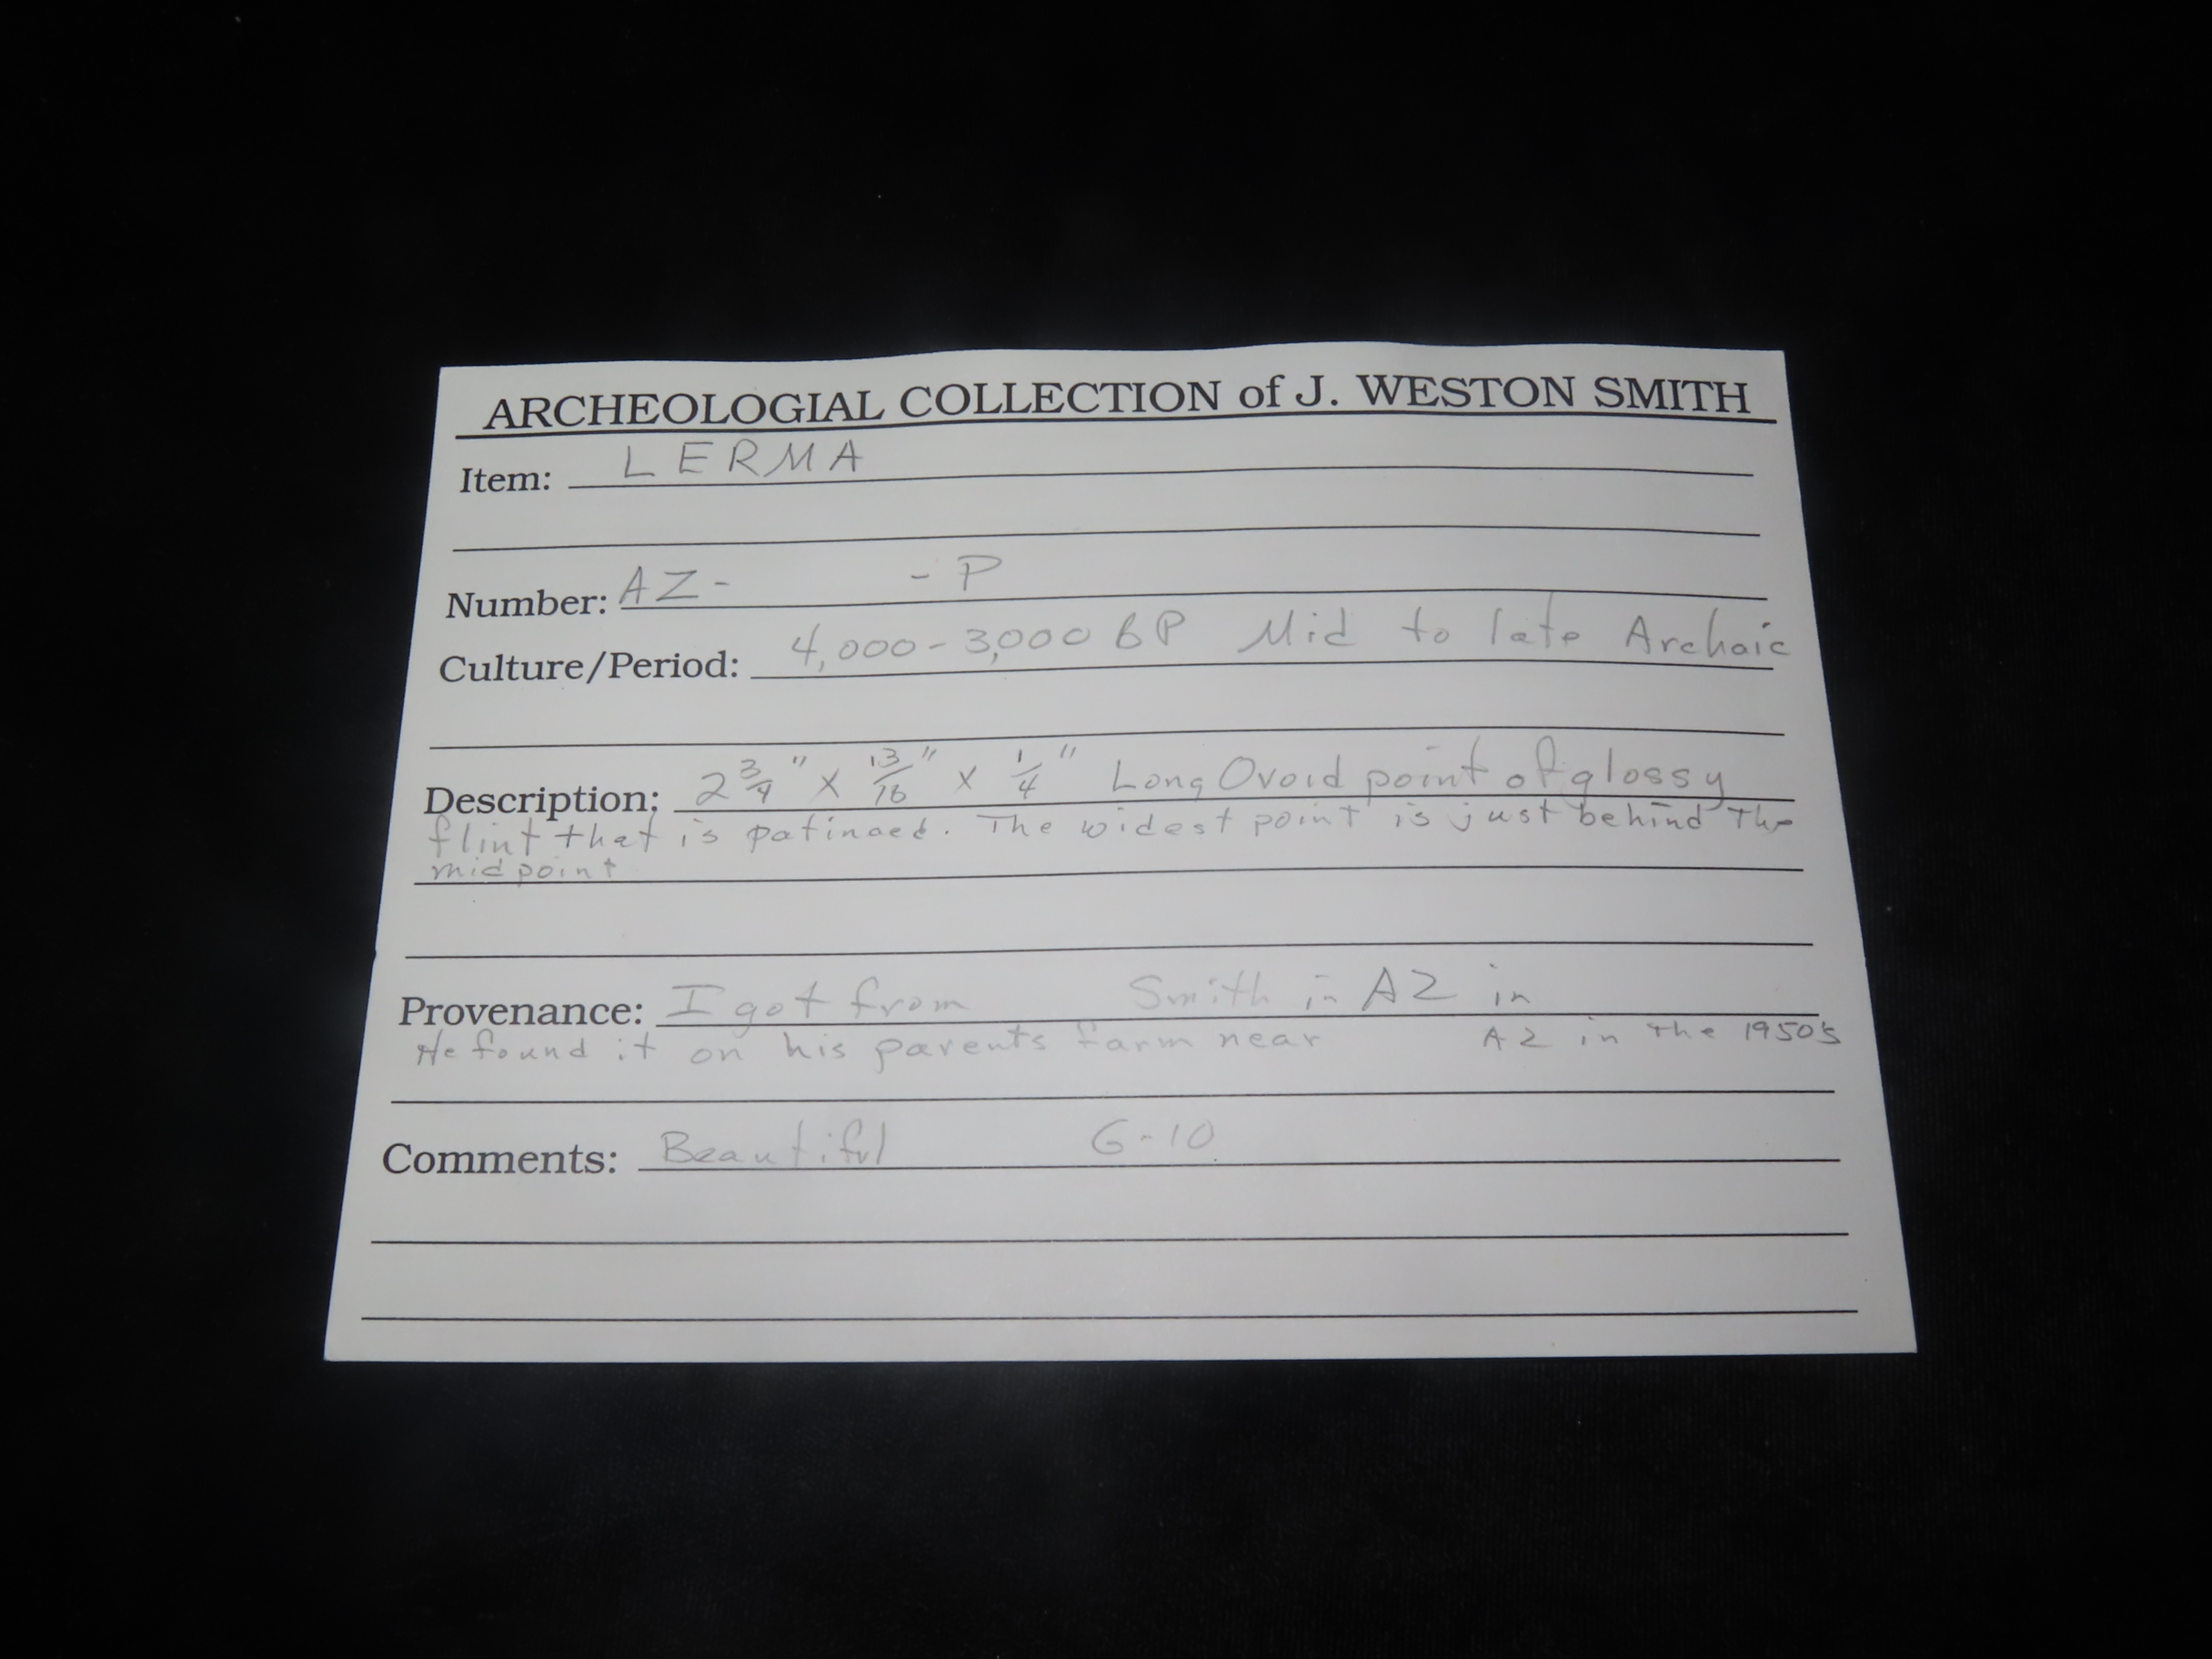 ARCHEOLOGIAL COLLECTION of J. WESTON SMITH
Item: LERMA
Number: AZ- -P
Culture/Period: 4,000-3,000 BP Mid to late Archaic
Description: 2 3/4" X 13/16" X 1/4" Long Ovoid point of glossy
flint that is patinaed. The widest point is just behind the
midpoint
Provenance: I got from Smith in AZ in
He found it on his parents farm near AZ in the 1950's
Comments: Beautiful G-10